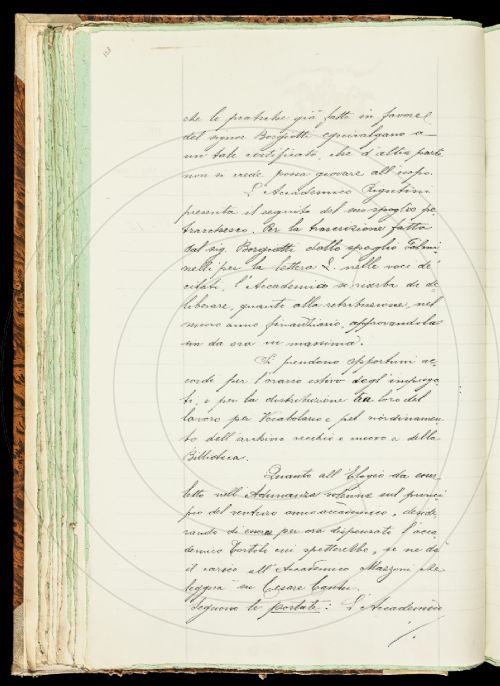 118
che le pratiche già fatte in favore
del signor Borgiotti equivalgano a
un tale certificato, che d'altra parte
non si crede possa giovare all'uopo.
L'Accademico Rigutini
presenta il seguito del suo spoglio pe-
trarchesco. Per la trascrizione fatta
dal sig. Borgiotti dello spoglio
nelli per la lettera L. nelle voci de'
citati, l'Accademia si riserba di de-
liberare, quanto alla retribuzione, nel
nuovo anno finanziario, approvandola
sin da ora in massima.
Si prendono opportuni ac-
cordi per l'orario estivo degl'impiega-
ti, e per la distribuzione tra loro del
lavoro pel Vocabolario e pel riordinamen-
to dell'archivio vecchio e nuovo e della
Biblioteca.
Quanto all'Elogio da esser
letto nell'Adunanza solenne sul princi-
pio del venturo anno accademico, deside-
rando di essere per ora dispensato l'acca-
demico Tortoli cui spetterebbe, se ne dà
il carico all'Accademico Mazzoni che
leggerà su Cesare Cantù.
Seguono le portate: L'Accademico